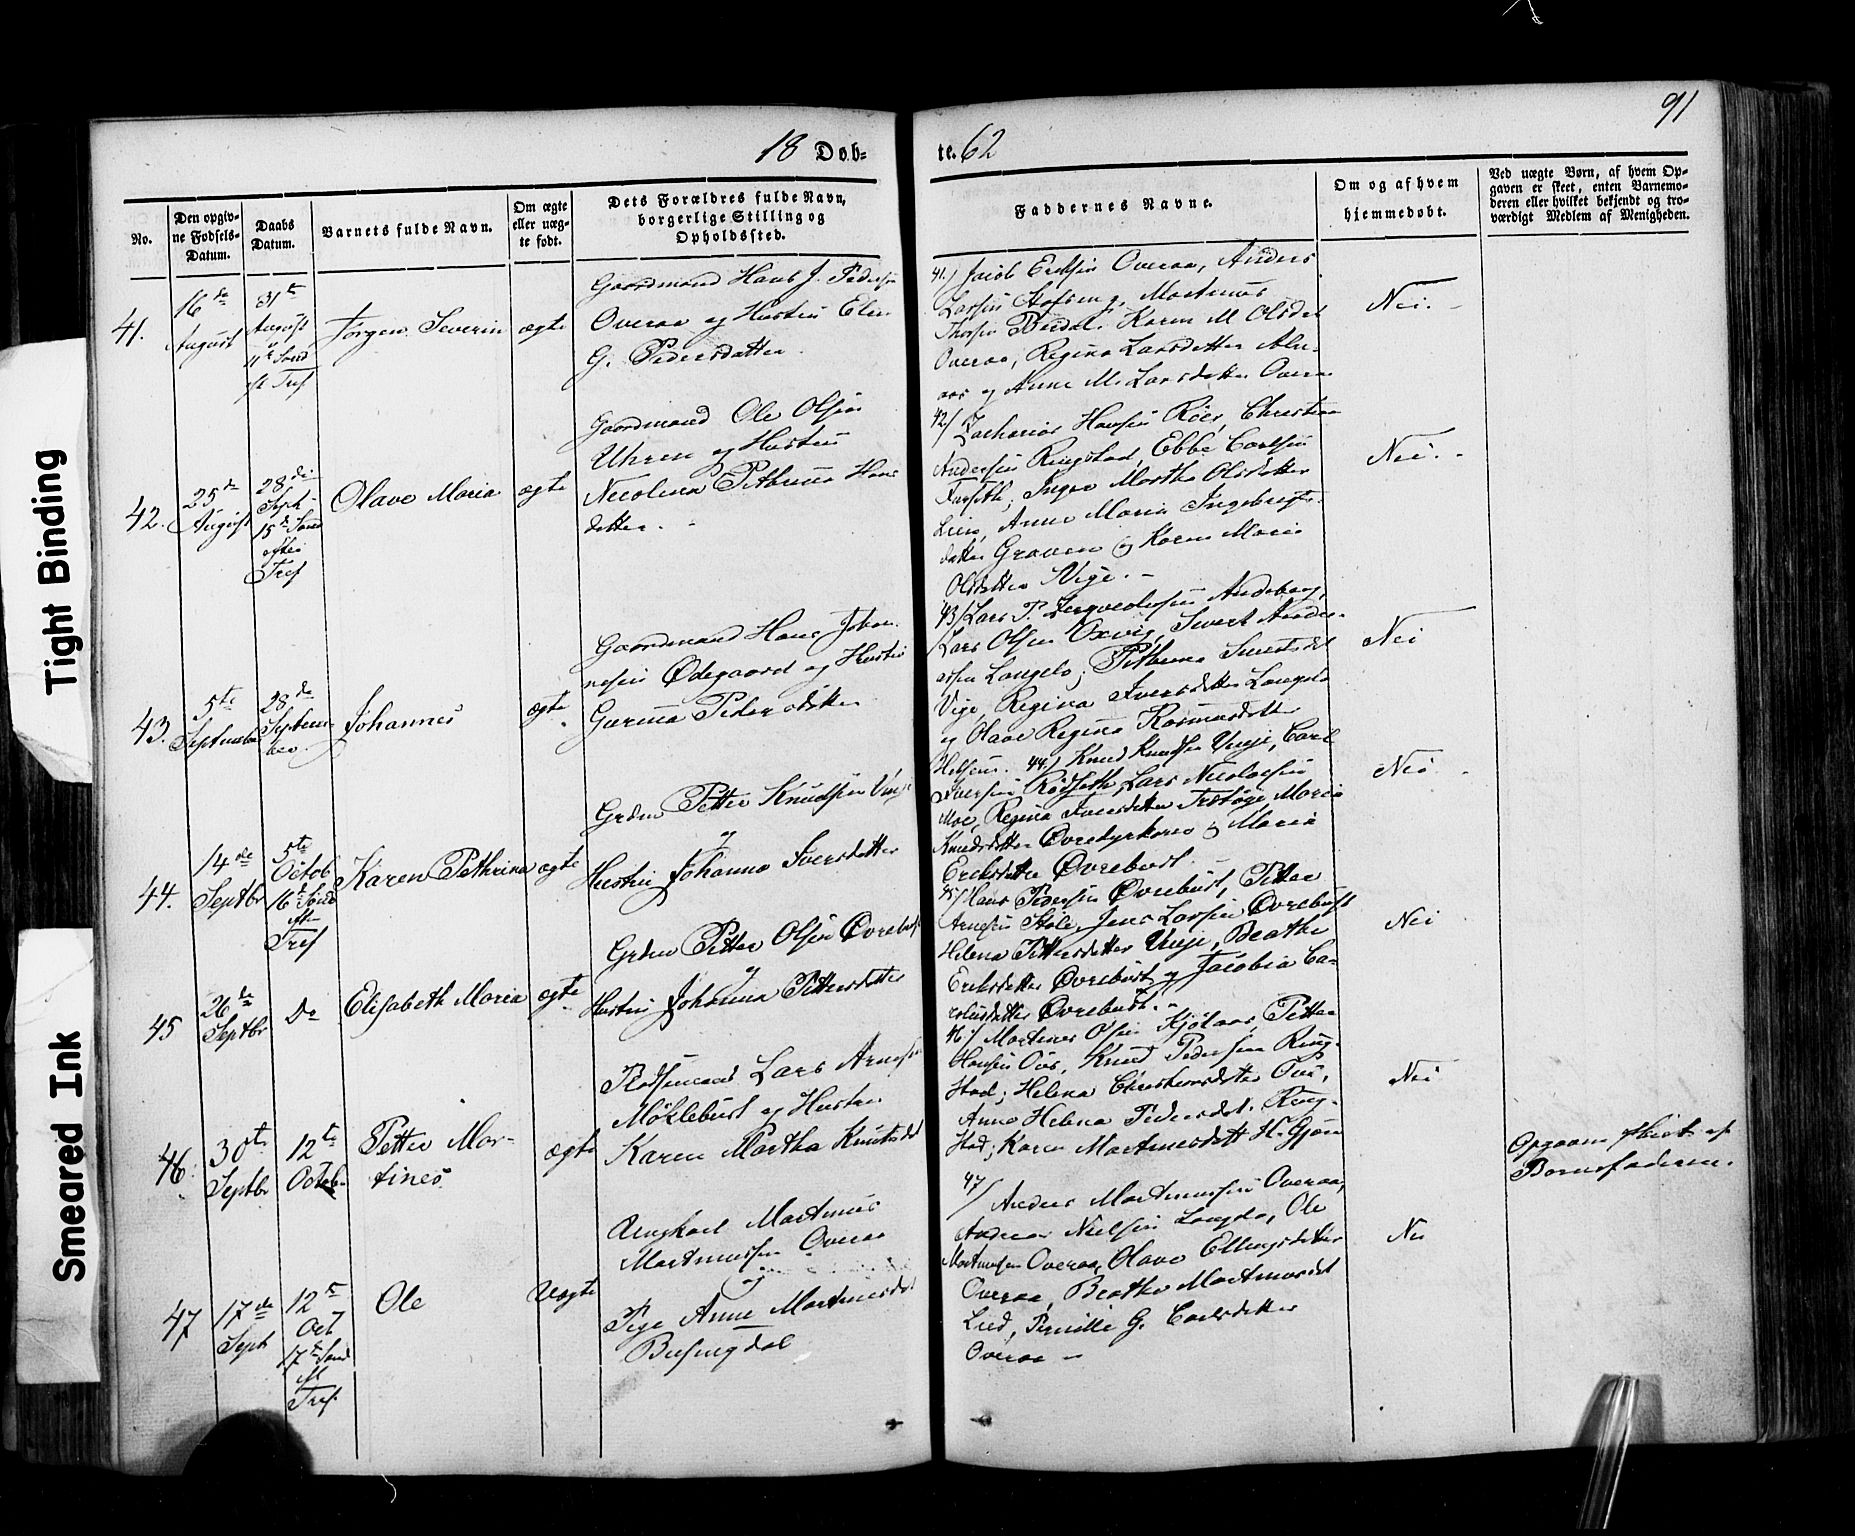 91
18 Døb-
te. 62
No.
Den opgiv-
ne Fødsels-
Datum.
Daabs
Datum.
Barnets fulde Navn.
Om ægte
eller uæg-
te født.
Dets Forældres fulde Navn,
borgerlige Stilling og
Opholdssted.
Faddernes Navne.
Om og af hvem
hjemmedøbt.
Ved uægte Børn, af hvem Op-
gaven er skeet, enten Barnemo-
deren eller hvilket bekjendt og tro-
værdigt Medlem af Menigheden.
41.
16de
August
31te
August
11te Sønd
ef Tref
Jørgen Severin
ægte
Gaardmand Hans J. Peders
Overaa og Hustru Elen
G. Pedersdatter.
41./ Jacob Overaa, Anders
Larsen Martinus
Karen M Olsdat
Overaa, Regina Larsdatter
og Anne M. Larsdatter Overaa
Nei.
42.
25de
August
28de
Septb
15de Sønd
efter
Tref
Olave Maria
ægte
Gaardmand Ole Olsen
Uhren og Hustru
Nicolina Pethrina Hans
datter.
42/ Zacharias Hansen Christian
Andersen Ringstad, Ebbe Carlsen
Inger Martha Olsdatter
Lien, Anne Maria Ingebrigts
datter Graven og Karen Maria
Olsdatter Vige.
Nei.
43.
5te
September
28de
Septem-
ber.
Johannes
ægte
Gaardmand Hans Johan-
nesen Ødegaard og Hustru
Pedersdatter
43/ Lars P.
Lars Olsen Oxvig, Sivert Ander-
Langelo, Pethrina
Vige, Regina Iversdatter Langelo
og Olave Regina Rasmusdatter
Nei
44.
14de
Septbr
5te
Octob
16de Sønd
efter
Tref
Karen Pethrina
ægte
Grdm Petter Knudsen Vinje
og
Hustru Johanna Iversdatter
44/ Knud Knudsen Vinje, Carl
Iversen Rødseth, Lars Nicolaisen
Moe, Regina Iversdatter Maria
Knudsdatter og Maria
Eriksdatter Øvrebust.
Nei
45
26de
Septbr
Do
Elisabeth Maria
ægte
Grdm Petter Olsen Øvrebust
og
Hustru Johanna Pettersdatter
45/ Hans Pedersen Øvrebust, Petter
Arnesen Jens Larsen Øvrebust
Helena Pettersdatter Vinje, Beathe
Eriksdatter Øvrebust og Jacobia Ca-
Øvrebust.
Nei
46.
30te
Septbr
12te
Octob-
Petter Mar-
tines
ægte
Pladsmand Lars Arnesen
Møklebust og Hustru
Karen Martha Knutsdat
46/ Martinus Olsen Petter
Hansen Knud Pedersen Ring-
stad; Helena Christiansdatter
Anne Helena Pedersdat. Ring-
stad; Karen Martinusdatt
Nei
47
17de
Septb
12te
Oct
17de Sønd
ef
Tref
Ole
Uægte
Ungkarl Martinus
Martinussen Overaa
og
Pige Anne Martinusdat
47/ Anders Martinussen Overaa,
Andreas Nielsen Ole
Martinusen Overaa, Olave Ellingsdatter
Overaa, Beathe Martinusdat
Lied, Pernille G. Carlsdatter
Overaa
Nei
Opgaven skeet af
Barnefaderen.
Tight Binding
Smeared Ink